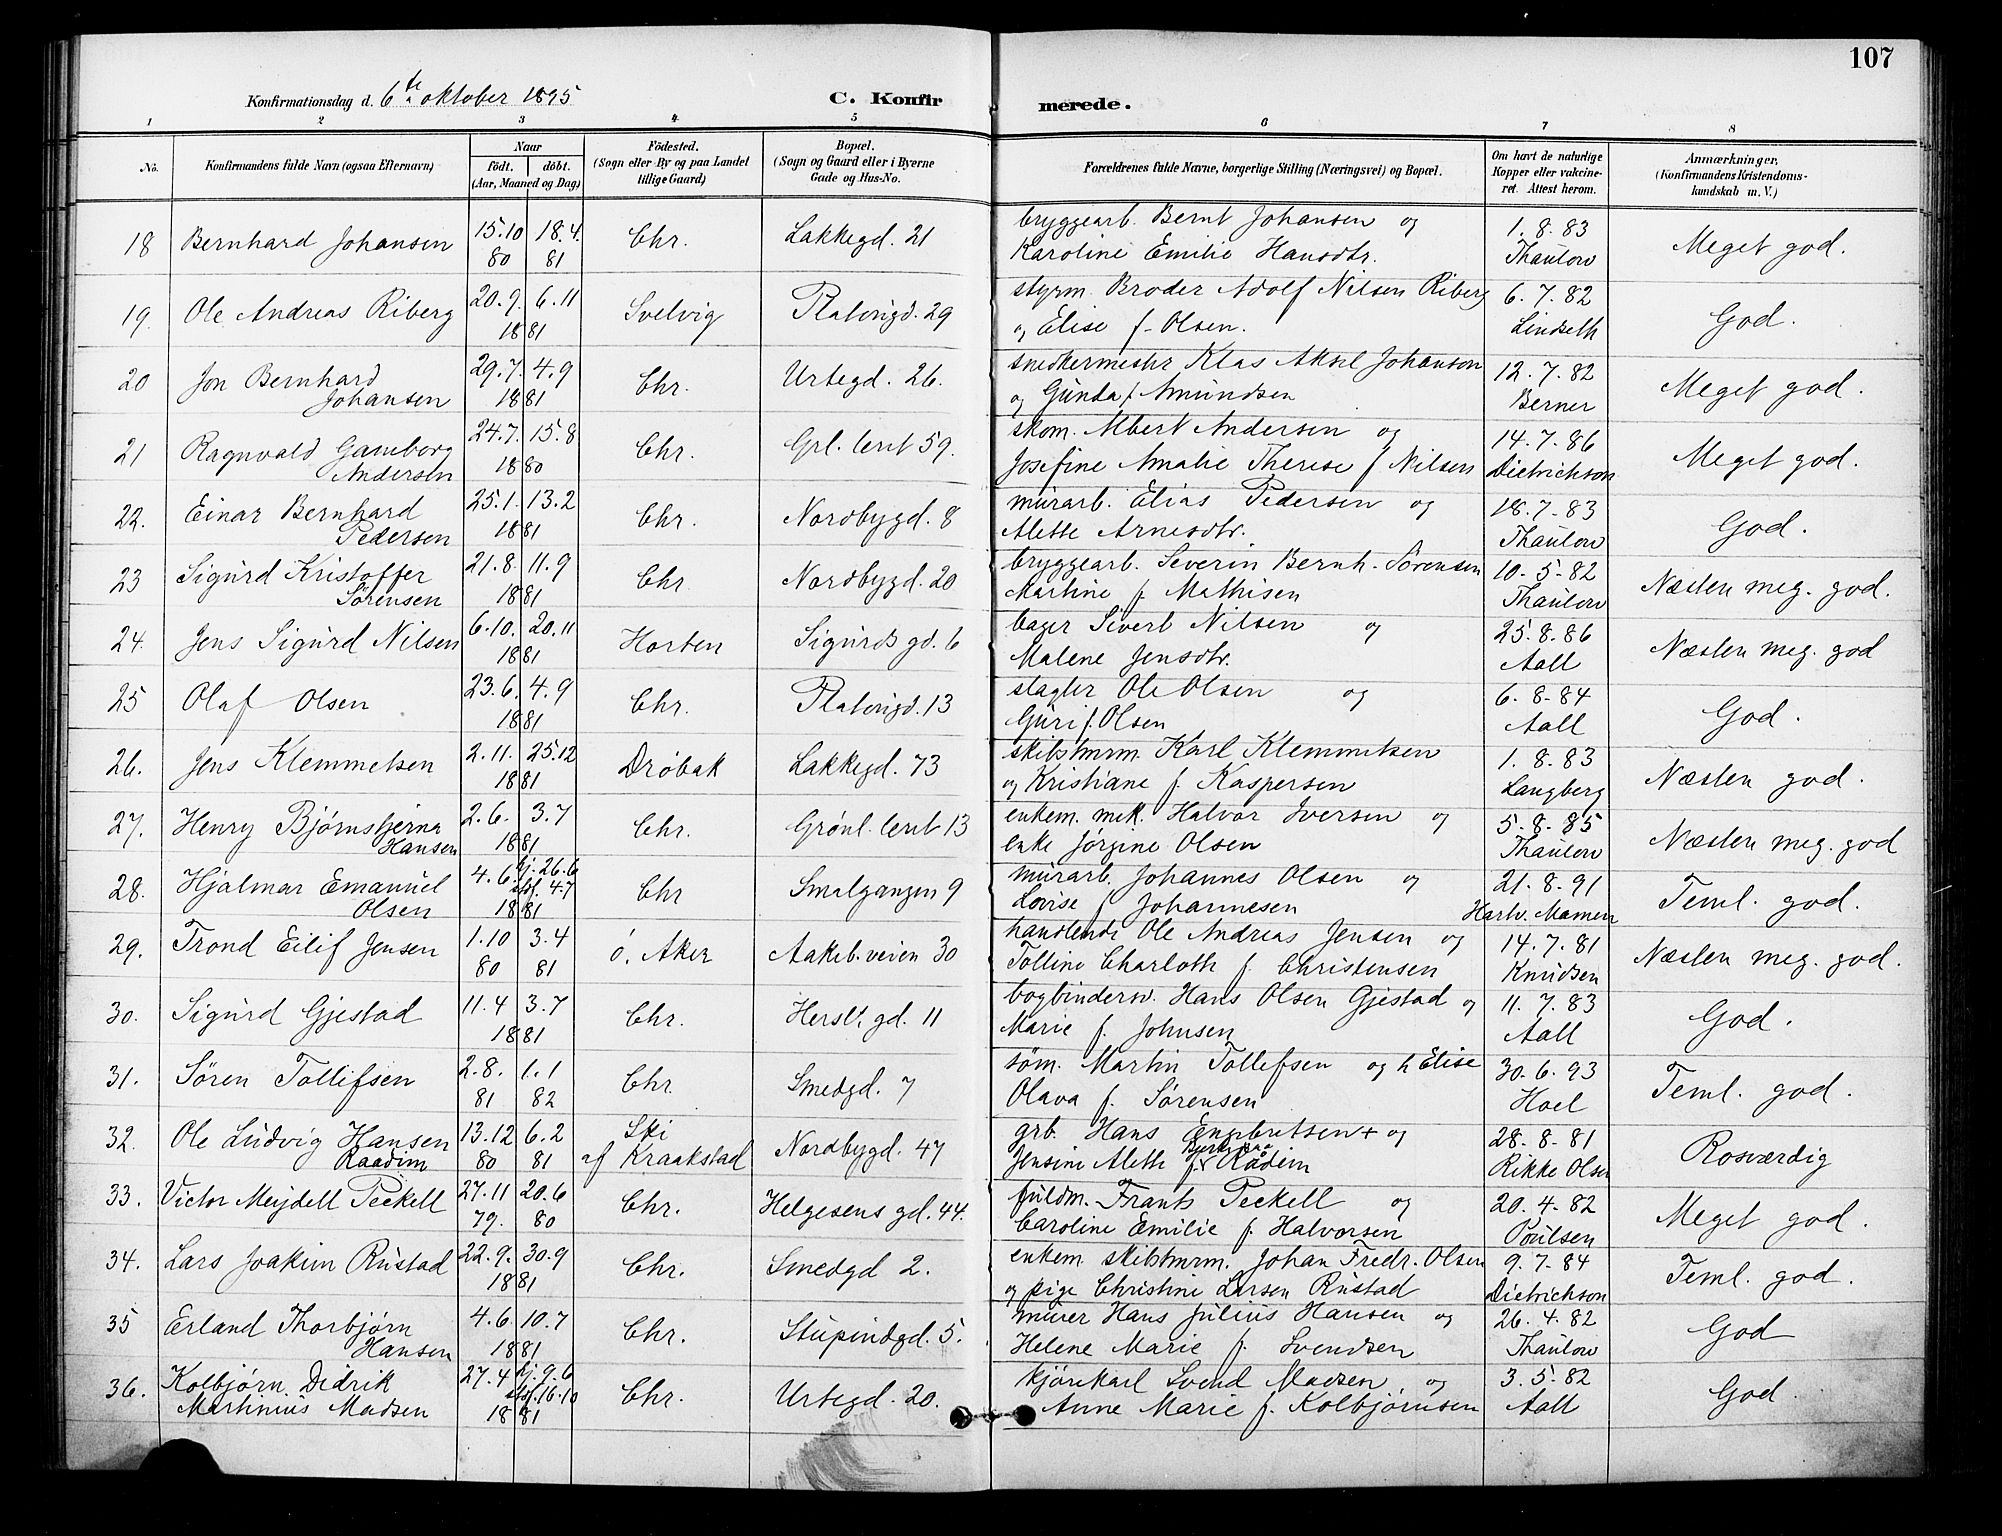 107
Konfirmationsdag d. 6te oktober 1895
C. Konfirmerede.
1 2 3 4 5 6 7 8
No. Konfirmandens fulde Navn (ogsaa Efternavn) Naar födt. döbt. (Aar, Maaned og Dag) Födested. (Sogn eller By og paa Landet tillige Gaard) Bopæl. (Sogn og Gaard eller i Byerne Gade og Hus-No. Forældrenes fulde Navne, borgerlige Stilling (Næringsvei) og Bopæl. Om havt de naturlige Kopper eller vakcineret. Attest herom. Anmærkninger. (Konfirmandens Kristendomskundskab m. V.)
18 Bernhard Johansen 15.10 80 18.4. 81 Chr. Lakkegd. 21 bryggearb. Bernt Johansen og Karoline Emilie Hansdtr. 1.8.83 Thaulow Meget god.
19. Ole Andreas Riberg 20.9. 6.11 1881 Svelvig Platougd. 29 styrm. Broder Adolf Nilsen Riberg og Elise f. Olsen. 6.7.82 Lindseth God.
20 Jon Bernhard Johansen 29.7. 4.9 1881 Chr. Urtegd. 26. snedkermester Klas Aksel Johanson og Gunda f. Amundsen 12.7.82 Berner Meget god.
21 Ragnvald Gamborg Andersen 24.7. 15.8 1880 Chr. Grl. leret 59. skom. Albert Andersen og Josefine Amalie Therese f Nilsen 14.7.86 Dietrichson Meget god.
22. Einar Bernhard Pedersen 25.1. 13.2 1881 Chr. Nordbygd. 8 murarb. Elias Pedersen og Alette Arnesdtr. 18.7.83 Thaulow God.
23 Sigurd Kristoffer Sörensen 21.8. 11.9 1881 Chr. Nordbygd. 20 bryggearb. Severin Bernh. Sörensen Martine f. Mathisen 10.5.82 Thaulow Næsten meg. god.
24. Jens Sigurd Nilsen 6.10. 20.11 1881 Horten Sigurds gd. 6 bager Sivert Nilsen og Malene Jensdtr. 25.8.86 Aall Næsten meg. god
25 Olaf Olsen 23.6. 4.9 1881 Chr. Platougd. 13 slagter Ole Olsen og Guri f. Olsen 6.8.84 Aall God.
26. Jens Klemmetsen 2.11. 25.12 1881 Dröbak Lakkegd. 73 skibstmrm. Karl Klemmetsen og Kristiane f. Kaspersen 1.8.83 Langberg Næsten god.
27. Henry Bjørnstjerna Hansen 2.6. 3.7 1881 Chr. Grönl. leret 13 enkem. mek. Halvor Iversen og enke Jørgine Olsen 5.8.85 Thaulow Næsten meg. god
28. Hjalmar Emanuel Olsen 4.6. hj. 26.6 stf. 4.7 1881 Chr Smalgangen 9 murarb. Johannes Olsen og Lovise f Johannesen 21.8.91 Hartv. Mamen Teml. god.
29. Trond Eilif Jensen 1.10 80 3.4 81 ö. Aker Aakeb.veien 30 handlende Ole Andreas Jensen og Tolline Charlotte f. Christensen 14.7.81 Knudsen Næsten meg. god.
30. Sigurd Gjestad 11.4 3.7 1881 Chr. Herslb gd. 11 bogbindersv. Hans Olsen Gjestad og Marie f. Johnsen 11.7.83 Aall God.
31. Sören Tollifsen 2.8. 81 1.1 82 Chr. Smedgd. 7 söm. Martin Tollefsen og h Elise Olava f. Sörensen 30.6.93 Hoel Teml. god.
32. Ole Ludvig Hansen Raadim 13.12 80 6.2 81 Ski af Kraakstad Nordbygd. 47 grb. Hans Engebretsen + og Jensine Alette f. Rådim 28.8.81 Rikke Olsen Rosværdig
33. Victor Meijdell Peckell 27.11 79. 20.6 80 Chr. Helgesens gd. 44. fuldm. Frants Peckell og Caroline Emilie f. Halvorsen 20.4.82 Poulsen Meget god.
34. Lars Joakim Rustad 22.9. 30.9 1881 Chr. Smedgd 2. enkem skibstmrm. Johan Fredr. Olsen og pige Christine Larsen Rustad 9.7.84 Dietrichson Teml. god.
35 Erland Thorbjørn Hansen 4.6. 10.7 1881 Chr. Stupindgd. 5. murer Hans Julius Hansen og Helene Marie f. Svendsen 26.4.82 Thaulow God
36. Kolbjørn Didrik Martinius Madsen 27.4 hj. 9.6 stf. 16.10 1881 Chr. Urtegd. 20. kjörekarl Svend Madsen og Anne Marie f. Kolbjørnsen 3.5.82 Aall God.